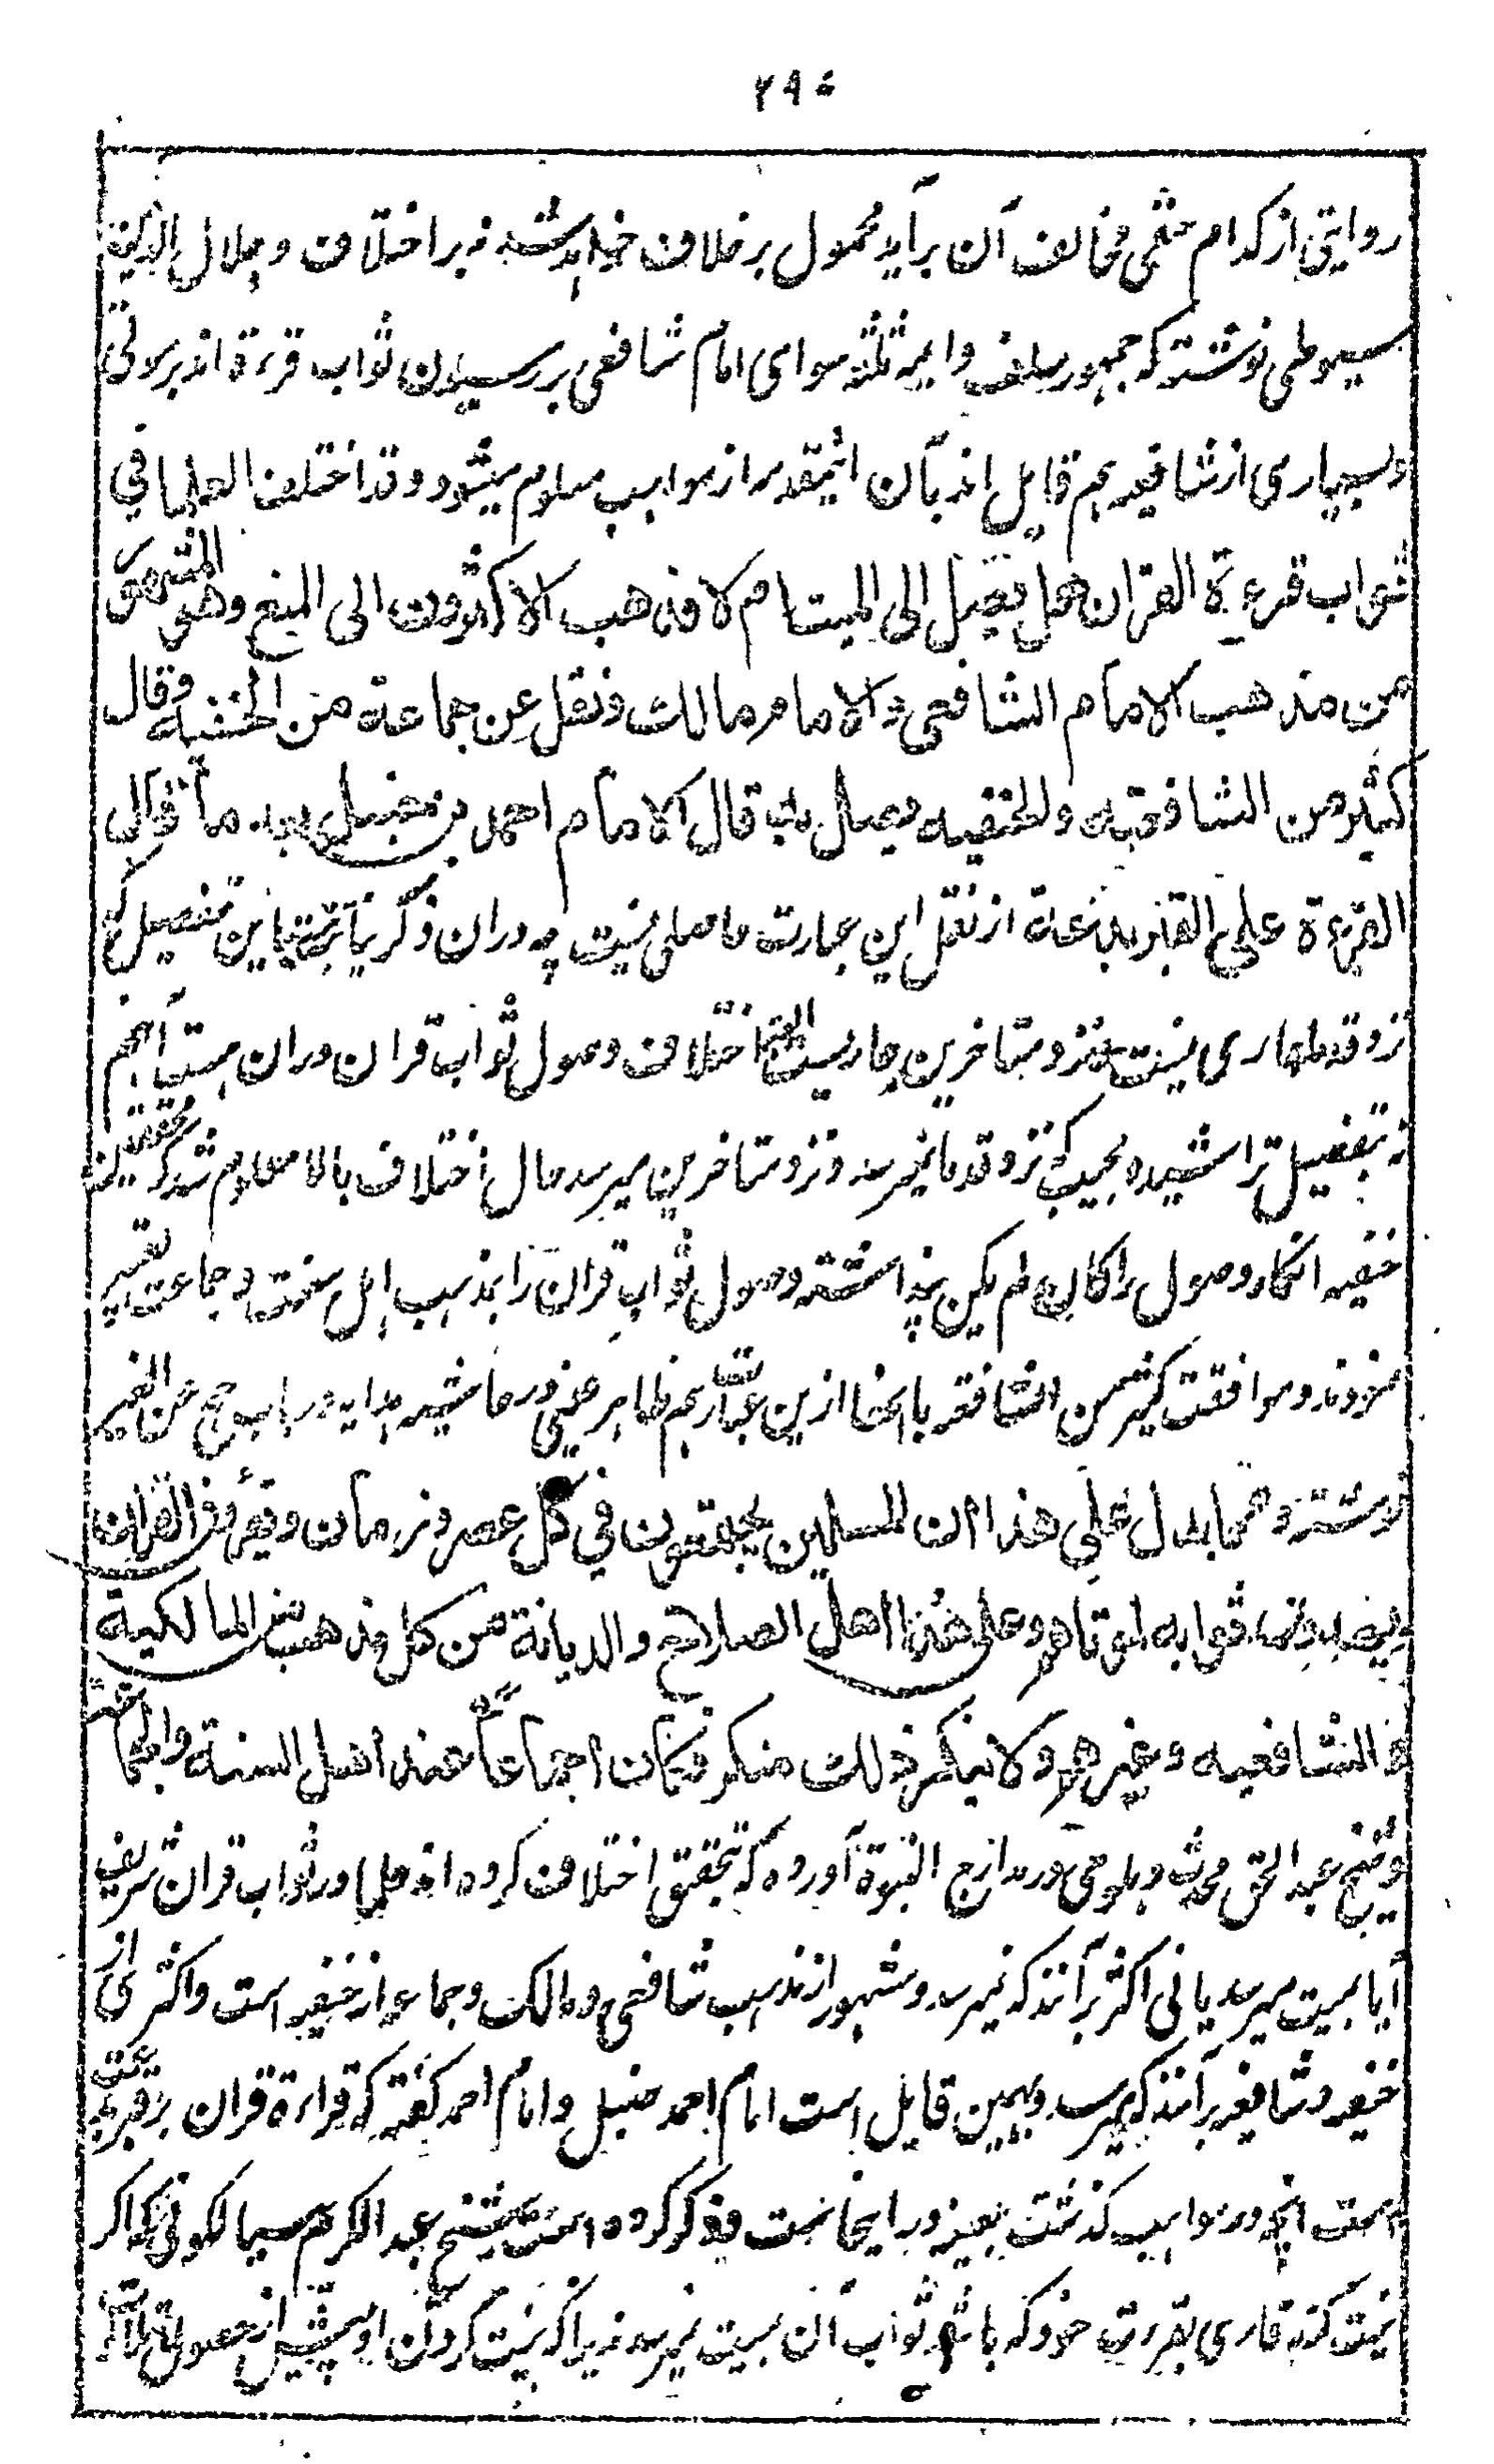 ۲۹۰
روایتی از کدام حنفی مخالف آن برآید محمول برخلاف خواهد شد نه بر اختلاف و جلال الدین
سیوطی نوشته که جمهور سلف و ایمه ثلثه سوای امام شافعی بر رسیدن ثواب قرءة اند بر موتی
و بسیاری از شافعیه هم قایل اند بآن اینقدر از مواهب معلوم میشود وقد اختلف العلما في
ثواب قرءة القران هل یصل الی المیت ام لا فذهب الاکثرون الی المنع وهو المشهور
من مذهب الامام الشافعی والامام مالك ونقل عن جماعة من الحنفیه وقال
کثیر من الشافعیه والحنفیه یصل وبه قال الامام احمد بن حنبل بعد ما قال
القرءة علی القبر بدعة از نقل این عبارت حاصلی نیست چه دران ذکر نیابت باین تفصیل که
نزد قدما جاری نیست و نزد متاخرین جاریست البته اختلاف وصول ثواب قران دران هست آنهم
نه بتفصیل تراشیده مجیب که نزد قدما نمیرسد و نزد متاخرین میرسد حال اختلاف بالا معلوم شد که محققین
حنفیه انکار وصول را کان لم یکن پنداشته وصول ثواب قران را بمذهب اهل سنت و جماعت تعبیر
نمودند و موافقت کثیر من الشافعیه با حنفیه ازین عبارت هم ظاهر عینی در حاشیه هدایه در باب حج عن الغیر
نوشته ومما یدل علی هذا ان المسلمین یجتمعون في کل عصر وزمان ویقرؤن القران
ویهدون ثوابه لموتاهم وعلی هذا اهل الصلاح والدیانة من کل مذهب من المالکیة
والشافعیه وغیرهم ولا ینکر ذلك منکر فکان اجماعا عند اهل السنة والجماعة
و شیخ عبد الحق محدث دهلوی در مدارج النبوة آورده که بتحقیق اختلاف کرده اند علما در ثواب قران شریف
آیا بمیت میرسد یا نی اکثر برآنند که نمیرسد و مشهور از مذهب شافعی و مالک و جماعه از حنفیه است و اکثری از
حنفیه و شافعیه برآنند که میرسد و بهمین قایل است امام احمد حنبل و امام احمد گفته که قراءة قران بر قبر بدعت
است انچه در مواهب گذشت بعینه در اینجا است و ذکر کرده است شیخ عبد الکریم سیالکوتی که اگر
نیت کند قاری بقرءت خود که باشد ثواب آن بمیت نمیرسد زیرا که نیت کردن او پیش از حصول تلاوت